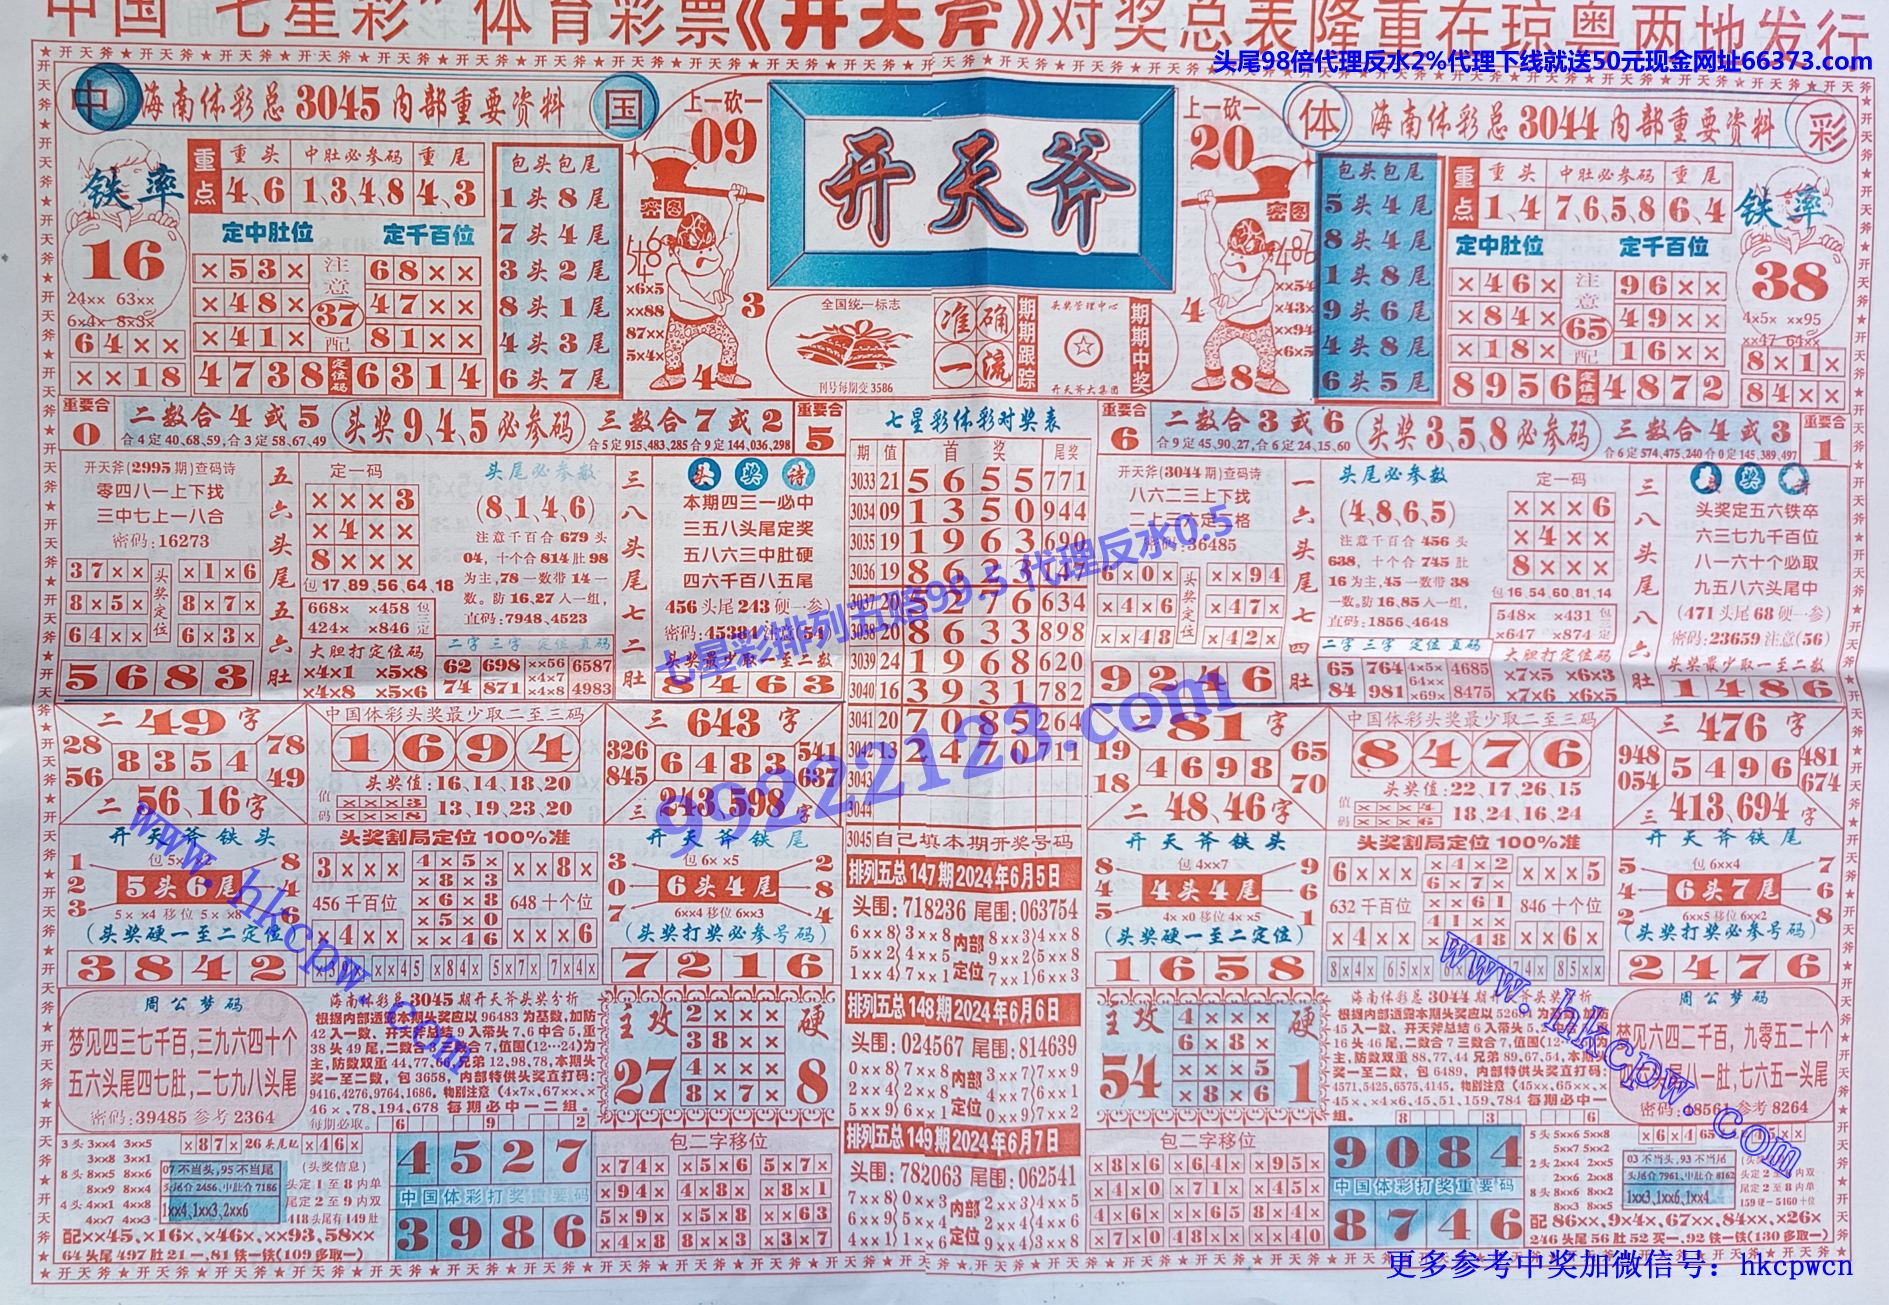 中国“七星彩”体育彩票《开天斧》对奖总表隆重在琼奥两地发行
头尾98倍代理反水2%代理下线就送50元现金网址66373.com
中 海南体彩总3045内部重要资料 国
上一砍一 09
开天斧
上一砍一 20
体 海南体彩总3044内部重要资料 彩
铁率
16
重点
重头 中肚必参码 重尾
4、6 1、3、4、8 4、3
定中肚位 定千百位
×53× 68××
×48× 47××
×41× 81××
注意 37 配
4738 定位码 6314
24×× 63××
6×4× 8×3×
64××
××18
包头包尾
1头8尾
7头4尾
3头2尾
8头1尾
4头3尾
6头7尾
×6×5
××88
87××
5×4×
3
4
全国统一标志
刊号每期变3586
准确一流
期期跟踪
头奖管理中心
开天斧大集团
期期中奖
4
8
××54
×43×
××94
×6×5
包头包尾
5头4尾
8头4尾
1头8尾
9头6尾
4头8尾
6头5尾
重点
重头 中肚必参码 重尾
1、4 7、6、5、8 6、4
定中肚位 定千百位
×46× 96××
×84× 49××
×18× 16××
注意 65 配
8956 定位码 4872
铁率
38
4×5× ××95
××47 64××
8×1×
84××
重要合 0
二数合4或5
合4定40,68,59,合3定58,67,49
头奖9、4、5必参码
三数合7或2
合5定915,483,285合9定144,036,298
重要合 5
七星彩体彩对奖表
重要合 6
二数合3或6
合9定45,90,27,合6定24,15,60
头奖3、5、8必参码
三数合4或3
合6定574,475,240合0定145,389,497
1
开天斧(2995期)查码诗
零四八一上下找
三中七上一八合
密码:16273
37×× ×1×6
8×5× 8×7×
64×× 6×3×
头奖定位
5683
五六头尾五六肚
定一码
×××3
×4××
8×××
包17,89,56,64,18
668× ×458
424× ×846
包三定
大胆打定位码
×4×1 ×5×8
×4×8 ×5×6
头尾必参数
(8,1,4,6)
注意千百合679头
04,十个合814肚98
为主,78一数带14一
数。防16,27人一组,
直码:7948,4523
二字 三字 定位 直码
62 698 ××56 6587
×4×7
74 871 ×4×8 4983
三八头尾七二肚
头奖诗
本期四三一必中
三五八头尾定奖
五八六三中肚硬
四六千百八五尾
456头尾243硬一参
密码:45384注意54
头奖最少取一至二数
8463
期 值 首奖 尾奖
3033 21 5655 771
3034 09 1350 944
3035 19 1963 690
3036 19
3037 20 634
3038 20 8633 898
3039 24 1968 620
3040 16 3931 782
3041 20 7085 264
3042 13 2470 711
3043
3044
3045 自己填本期开奖号码
开天斧(3044期)查码诗
八六二三上下找
密码:36485
6×0× ××94
×4×6 ×47×
××48 ×42×
头奖定位
9246
一六头尾七四肚
头尾必参数
(4,8,6,5)
注意千百合456头
638,十个合745肚
16为主,45一数带38
一数。防16,85人一组,
直码:1856,4648
二字 三字 定位 直码
65 764 4×5× 4685
64××
84 981 ×69× 8475
定一码
×××6
×4××
8×××
包16,54,60,81,14
548× ×431
×647 ×874
包三定
大胆打定位码
×7×5 ×6×3
×7×6 ×6×5
三八头尾八六肚
头奖定五六铁卒
六三七九千百位
八一六十个必取
九五八六头尾中
(471头尾68硬一参)
密码:23659注意(56)
头奖最少取一至二数
1486
七星彩排列五赔99.5 代理反水0.5
99222123.com
二 49 字
28 78
8354
56 49
二 56、16 字
中国体彩头奖最少取二至三码
1694
头奖值:16,14,18,20
值码 ×××3 13,19,23,20
×××8
三 643 字
326 541
6483
845 637
三 243,598 字
二 81 字
19 65
4698
18 70
二 48、46 字
中国体彩头奖最少取二至三码
8476
头奖值:22,17,26,15
值码 ×××4 18,24,16,24
×××6
三 476 字
948 481
5496
054 674
三 413,694 字
开天斧铁头
1 8
2 5头6尾 4
3 6
5× ×4移位5× ×8
(头奖硬一至二定位)
3842
头奖割局定位100%准
3××× 4×5× ××8×
×8×3
456千百位 ×6×8 648十个位
×5×0
×4×× ××46 ×××6
×45 ×84× 5×7× 7×4×
开天斧铁尾
包6× ×5
3 2
0 6头4尾 8
7 4
6××4移位6××3
(头奖打奖必参号码)
7216
排列五总147期2024年6月5日
头围:718236 尾围:063754
6××8 3××8 8××3 4××8
5××2 4××5 9××2 5××8
1××4 7××1 7××1 6××3
内部定位
排列五总148期2024年6月6日
头围:024567 尾围:814639
0××8 7××8 3××7 7××9
2××4 2××8 4××7 6××1
5××9 6××1 0××9 7××2
内部定位
排列五总149期2024年6月7日
头围:782063 尾围:062541
7××8 0××3 2××3 4××5
6××9 5××4 2××4 4××8
4××1 1××6 9××4 3××8
内部定位
开天斧铁头
包4××7
8 9
4 4头4尾 6
5 1
4× ×0移位4× ×5
(头奖硬一至二定位)
1658
头奖割局定位100%准
6××× ×4×2 ×××5
6×7×
632千百位 ××61 846十个位
41××
×4×× ××48 ××6×
8×4× 65×× 74× 85××
开天斧铁尾
包6××4
5 7
4 6头7尾 6
2 8
6××5移位6××2
(头奖打奖必参号码)
2476
周公梦码
梦见四三七千百,三九六四十个
五六头尾四七肚,二七九八头尾
密码:39485参考2364
海南体彩总3045期开天斧头奖分析
根据内部透露本期头奖应以96483为基数,加防
42入一数、开天斧总结9入带头7,6中合5,重
38头49尾,二数合8三数合7,值围(12…24)为
主,防数双重44,77,66兄弟12,98,78,本期头
奖一至二数,包3658,内部特供头奖直打码:
9416,4276,9764,1686。特别注意(4×7×,67××,×
46×,78,194,678 每期必中一二组。
每期必取。 6 9 2
主攻 27
2×××
×38××
4×××
8×7×
硬 8
主攻 54
4×××
6×8×
×××5
×8×6
硬 1
海南体彩总3044期开天斧头奖分析
45入一数、开天斧总结6入带头5
奖一至二数,包6489,内部特供头奖直打码:
4571,5425,6575,4145。特别注意(45××,65××,×
45×,×4×6,45,51,159,784 每期必中一
组。 8 3 6
周公梦码
梦见六四二千百,九零五二十个
八一肚,七六五一头尾
密码:38561参考8264
3头3××4 3××5
3××8 3××1
8头8××5 8××6
8××9 8××4
4头4××1 4××8
4××7 4××3
×87× 26头尾忆 ×46×
07不当头,95不当尾
头尾介2456、中肚介7186
1××4、1××3、2××6
(头奖信息)
头定1至8内单
尾定2至9内双
418头尾有149肚
配××45、×16×、×46×、××93、58××
64头尾497肚21一、81铁一铁(109多取一)
4527
中国体彩打奖重要码
3986
包二字移位
×74× ×5×6 5×7×
×94× 4×8× ×8×1
5×9× ×5×8 ××63
×4×8 8××3 ×46×
包二字移位
×8×6 ×64× ×95×
4××0 ×71× ×45×
4×6× ××65 8××4
×48× ××40
9084
中国体彩打奖重要码
8746
5头5××6 5××8
5××7 5××2
2头2××4 2××5
2××6 2××8
8头8××6 8××2
8××5 8××7
×6×4
03不当头,93不当尾
头尾介7961、中肚介8162
1××3、1××6、1××4
头定2至8内双
尾定2至8内单
159硬一5160十位
配86××、9×4×、67××、84××、×26×
246头尾56肚52买一、92铁一铁(130多取一)
www.hkcpw.com
www.hkcpw.com
更多参考中奖加微信号: hkcpwcn